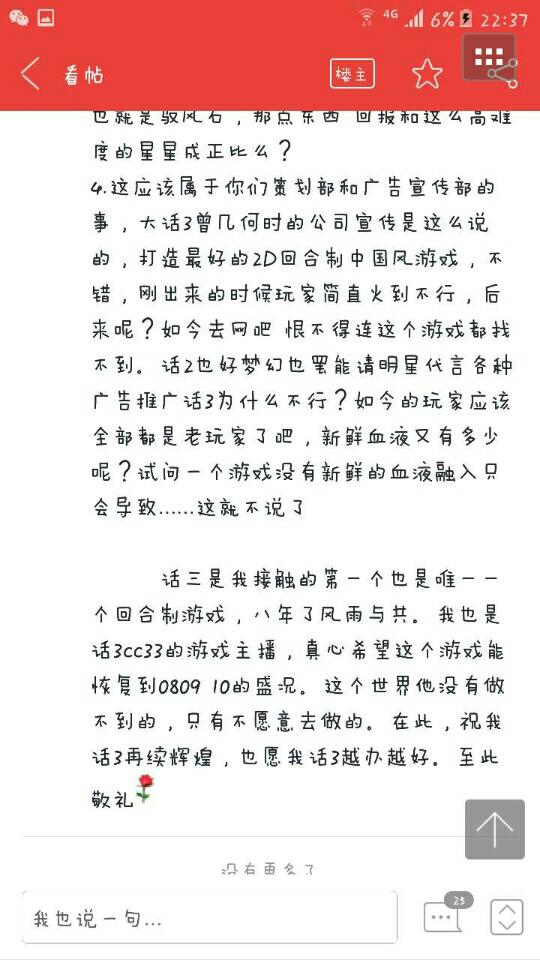 4G 6% 22:37
看帖 楼主
也就是驭风石，那点东西 回报和这么高难
度的星星成正比么？
4.这应该属于你们策划部和广告宣传部的
事，大话3曾几何时的公司宣传是这么说
的，打造最好的2D回合制中国风游戏，不
错，刚出来的时候玩家简直火到不行，后
来呢？如今去网吧 恨不得连这个游戏都找
不到。话2也好梦幻也罢能请明星代言各种
广告推广话3为什么不行？如今的玩家应该
全部都是老玩家了吧，新鲜血液又有多少
呢？试问一个游戏没有新鲜的血液融入只
会导致......这就不说了
话三是我接触的第一个也是唯一一
个回合制游戏，八年了风雨与共。我也是
话3cc33的游戏主播，真心希望这个游戏能
恢复到0809 10的盛况。这个世界他没有做
不到的，只有不愿意去做的。在此，祝我
话3再续辉煌，也愿我话3越办越好。至此
敬礼
没有更多了
我也说一句...
25